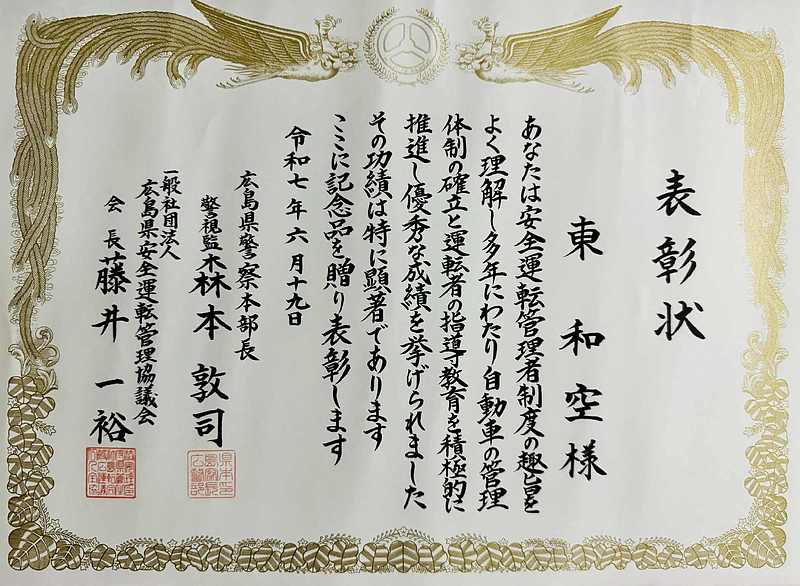 表彰状
東 和空様
あなたは安全運転管理者制度の趣旨を
よく理解し多年にわたり自動車の管理
体制の確立と運転者の指導教育を積極的に
推進し優秀な成績を挙げられました
その功績は特に顕著であります
ここに記念品を贈り表彰します
令和七年六月十九日
広島県警察本部長
警視監 森本 敦司
一般社団法人
広島県安全運転管理協議会
会長 藤井 一裕